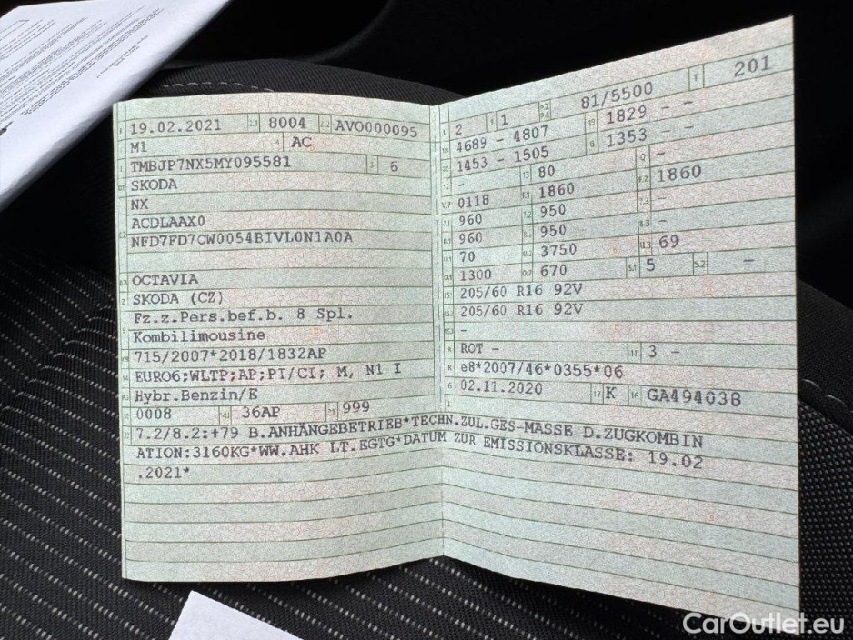 19.02.2021 8004 AVO000095
M1 AC
TMBJP7NX5MY095581 6
SKODA
NX
ACDLAAX0
NFD7FD7CW0054BIVL0N1A0A
OCTAVIA
SKODA (CZ)
Fz.z.Pers.bef.b. 8 Spl.
Kombilimousine
715/2007*2018/1832AP
EURO6;WLTP;AP;PI/CI; M, N1 I
Hybr.Benzin/E
0008 36AP 999
2 1 81/5500 201
4689 - 4807 1829 - -
1453 - 1505 1353 - -
- 80 -
0118 1860 1860
960 950 -
960 950 -
70 3750 69
1300 670 5 -
205/60 R16 92V
205/60 R16 92V
-
ROT - 3 -
e8*2007/46*0355*06
02.11.2020 K GA494038
7.2/8.2:+79 B.ANHÄNGEBETRIEB*TECHN.ZUL.GES-MASSE D.ZUGKOMBIN
ATION:3160KG*WW.AHK LT.EGTG*DATUM ZUR EMISSIONSKLASSE: 19.02
.2021*
CarOutlet.eu